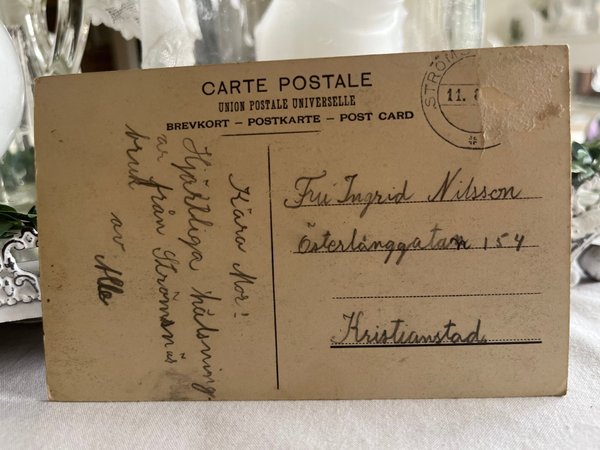 CARTE POSTALE
UNION POSTALE UNIVERSELLE
BREVKORT – POSTKARTE – POST CARD
STRÖM
11. 8
Kära Mor!
Hjärtliga hälsning
ar från Strömsnäs
bruk
av Alle
Fru Ingrid Nilsson
Österlånggatan 154
Kristianstad